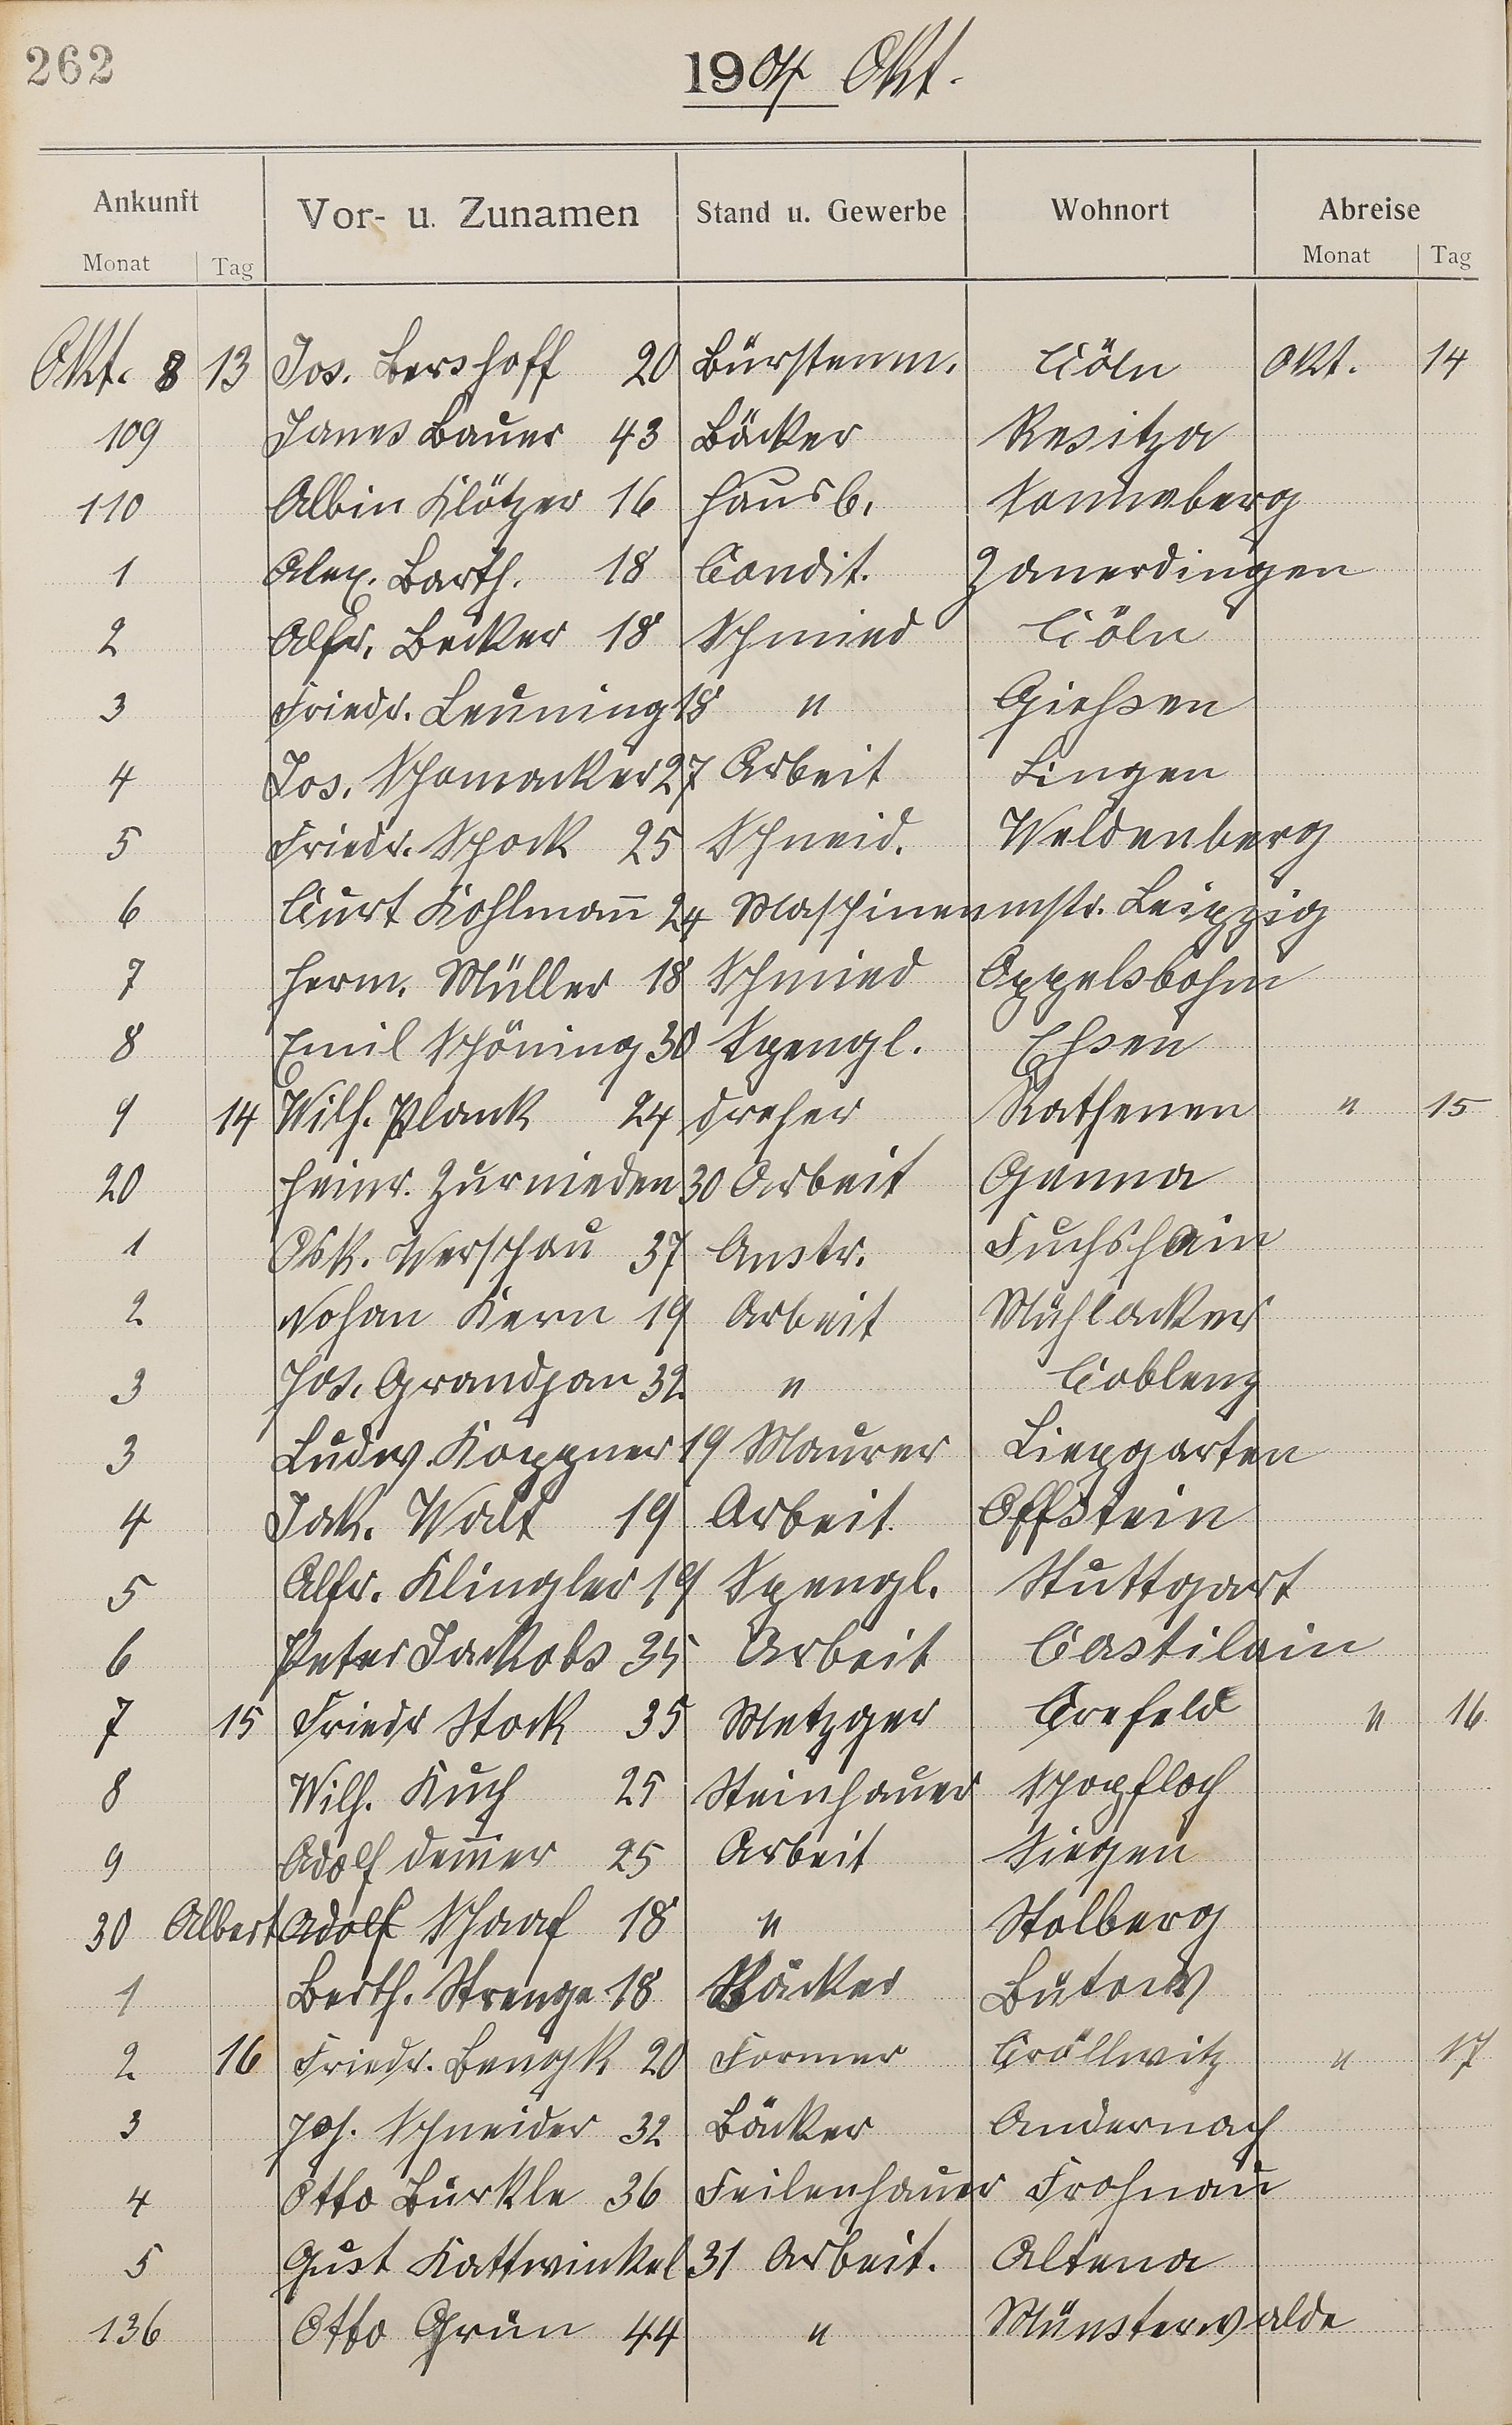 262
1904 Okt.
Ankunft Vor- u. Zunamen Stand u. Gewerbe Wohnort Abreise
Monat Tag Monat Tag
Okt. 8 13 Jos. Bershoff 20 Bürstenm. Cöln Okt. 14
109 Janos Bauer 43 Bäcker Resitza
110 Albin Klötzer 16 Hausb. Sonneberg
1 Alex. Barth. 18 Condit. Zanerdingen
2 Alfr. Becker 18 Schmied Cöln
3 Friedr. Leuning 18 " Giehsen
4 Jos. Schomacker 27 Arbeit Lingen
5 Friedr. Schock 25 Schneid. Weldenberg
6 Curt Kohlman̅ 24 Maschinenmstr. Leipzig
7 Herm. Müller 18 Schmied Oppelsbohm
8 Emil Schöning 30 Spengl. Ehsen
9 14 Wilh. Plank 24 Dreher Rathenen " 15
20 Heinr. Zurnieden 30 Arbeit Genna
1 Osk. Werschau 37 Anstr. Fuchshain
2 Johan Kern 19 Arbeit Mühlacker
3 Jos. Grandjan 32 " Coblenz
3 Ludw. Koppner 19 Maurer Liepgarten
4 Jak. Walt 19 Arbeit Offstein
5 Alfr. Klingler 19 Spengl. Stuttgart
6 Peter Jackobs 35 Arbeit Castilain
7 15 Friedr Stock 35 Metzger Crefeld " 16
8 Wilh. Kuch 25 Steinhauer Schopfloch
9 Adolf Dem̅er 25 Arbeit Siegen
30 Albert Adolf Schaaf 18 " Stolberg
1 Berth. Strenge 18 Bäcker Bütow
2 16 Friedr. 20 Former Cröllwitz " 17
3 Joh. Schneider 32 Bäcker Andernach
4 Otto Bürkle 36 Feilenhauer Frohnau
5 Gust Kattwinkel 31 Arbeit. Altena
136 Otto Grün 44 " Münsterwalde